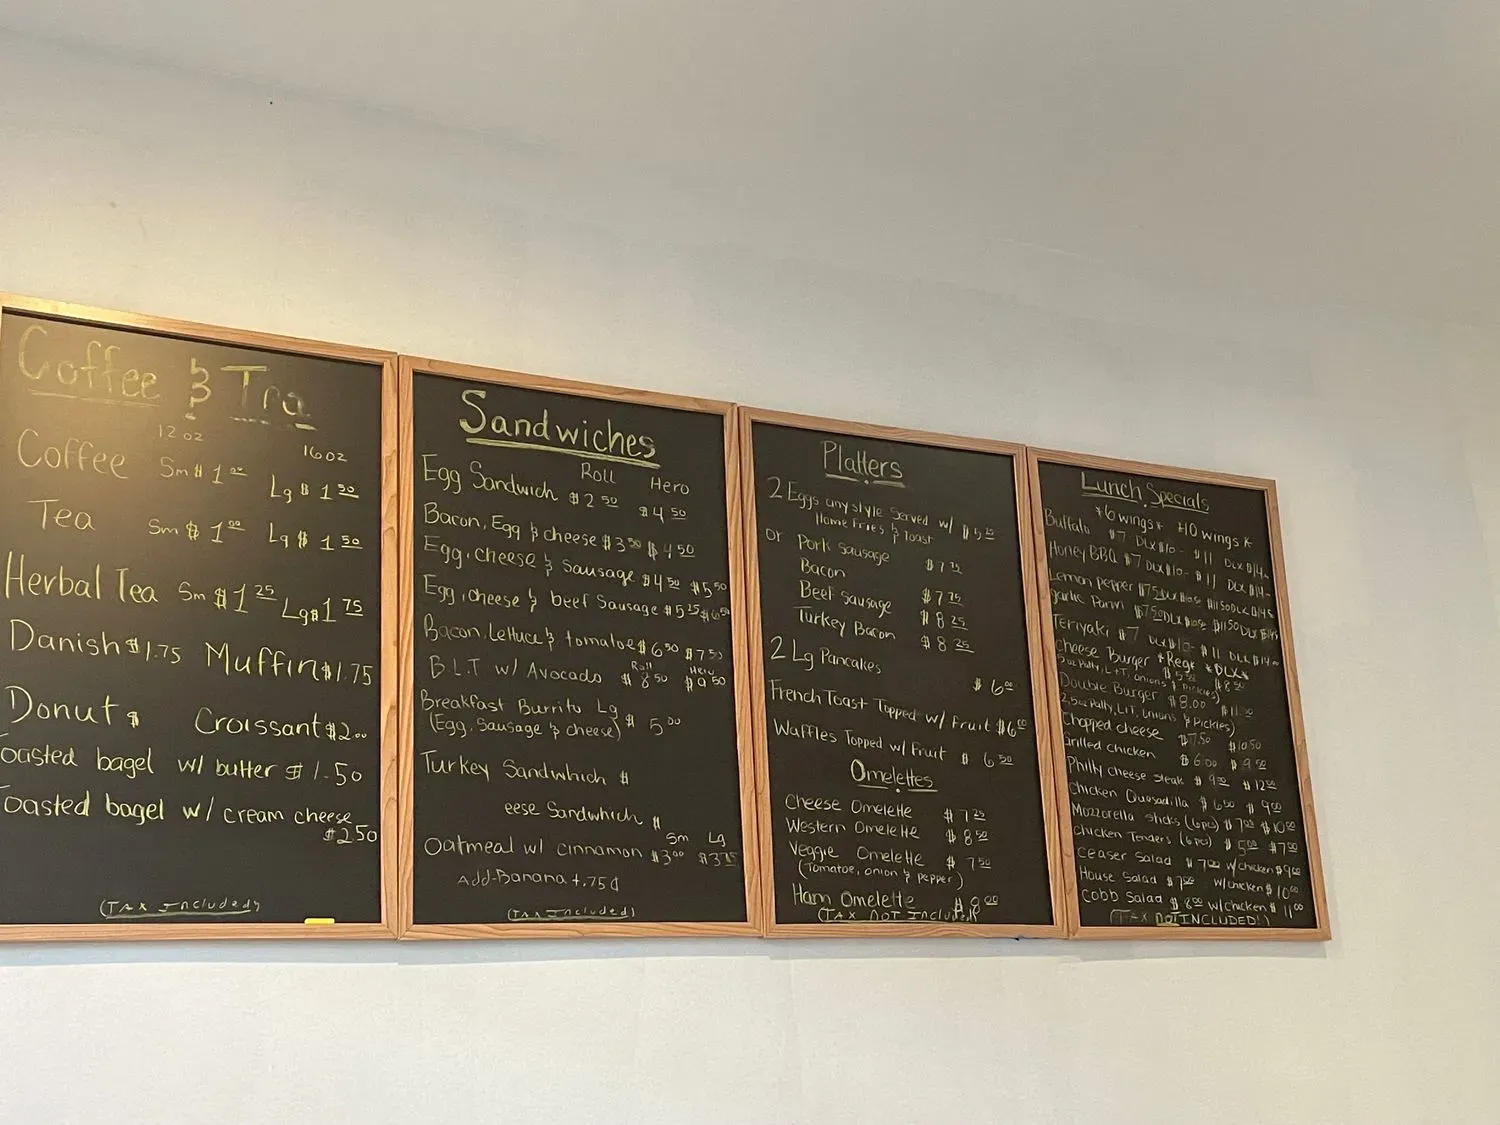 Coffee & Tea
12 oz 16oz
Coffee Sm $1.00 Lg $1.50
Tea Sm $1.00 Lg $1.50
Herbal Tea Sm $1.25 Lg $1.75
Danish $1.75 Muffin $1.75
Donut $ Croissant $2.00
oasted bagel w/ butter $1.50
oasted bagel w/ cream cheese
$2.50
(TAX Included)
Sandwiches
Roll Hero
Egg Sandwich $2.50 $4.50
Bacon, Egg & cheese $3.50 $4.50
Egg, cheese & Sausage $4.50 $5.50
Egg, cheese & beef Sausage $5.25 $6.50
Bacon, Lettuce & tomatoe $6.50 $7.50
Roll Hero
B.L.T w/ Avocado $8.50 $9.50
Breakfast Burrito Lg
(Egg, Sausage & cheese) $5.00
Turkey Sandwhich $
eese Sandwhich $
Sm Lg
Oatmeal w/ cinnamon $3.00 $3.75
Add-Banana +.75¢
(TAX Included)
Platters
2 Eggs any style served w/ $5.25
Home Fries & Toast
or Pork Sausage $7.75
Bacon
Beef Sausage $7.75
Turkey Bacon $8.25
$8.25
2 Lg Pancakes $6.00
French Toast Topped w/ Fruit $6.00
Waffles Topped w/ Fruit $6.50
Omelettes
Cheese Omelette $7.25
Western Omelette $8.50
Veggie Omelette $7.50
(Tomatoe, onion & pepper)
Ham Omelette $8.00
(TAX NOT Included)
Lunch Specials
*6 wings* *10 wings*
Buffalo $7 DLX $10- $11 DLX $14-
Honey BBQ $7 DLX $10- $11 DLX $14-
Lemon pepper $7.50 DLX $11.50 DLX
garlic Parm $7.50 DLX $11.50 DLX
Teriyaki $7 DLX $10- $11 DLX $14-
Cheese Burger *Reg* *DLX*
$8.50
Double Burger $8.00
Chopped cheese $7.50 $10.50
Grilled chicken $6.00 $9.50
Philly cheese steak $9.00 $12.00
Chicken Quesadilla $6.50 $9.00
Mozzarella sticks (6pc) $7.00 $10.00
Chicken Tenders (6pc) $5.00 $7.00
Ceaser Salad $7.00 w/chicken $9.00
House Salad $7.00 w/chicken $10.00
Cobb Salad $8.00 w/chicken $11.00
(TAX NOT INCLUDED!)